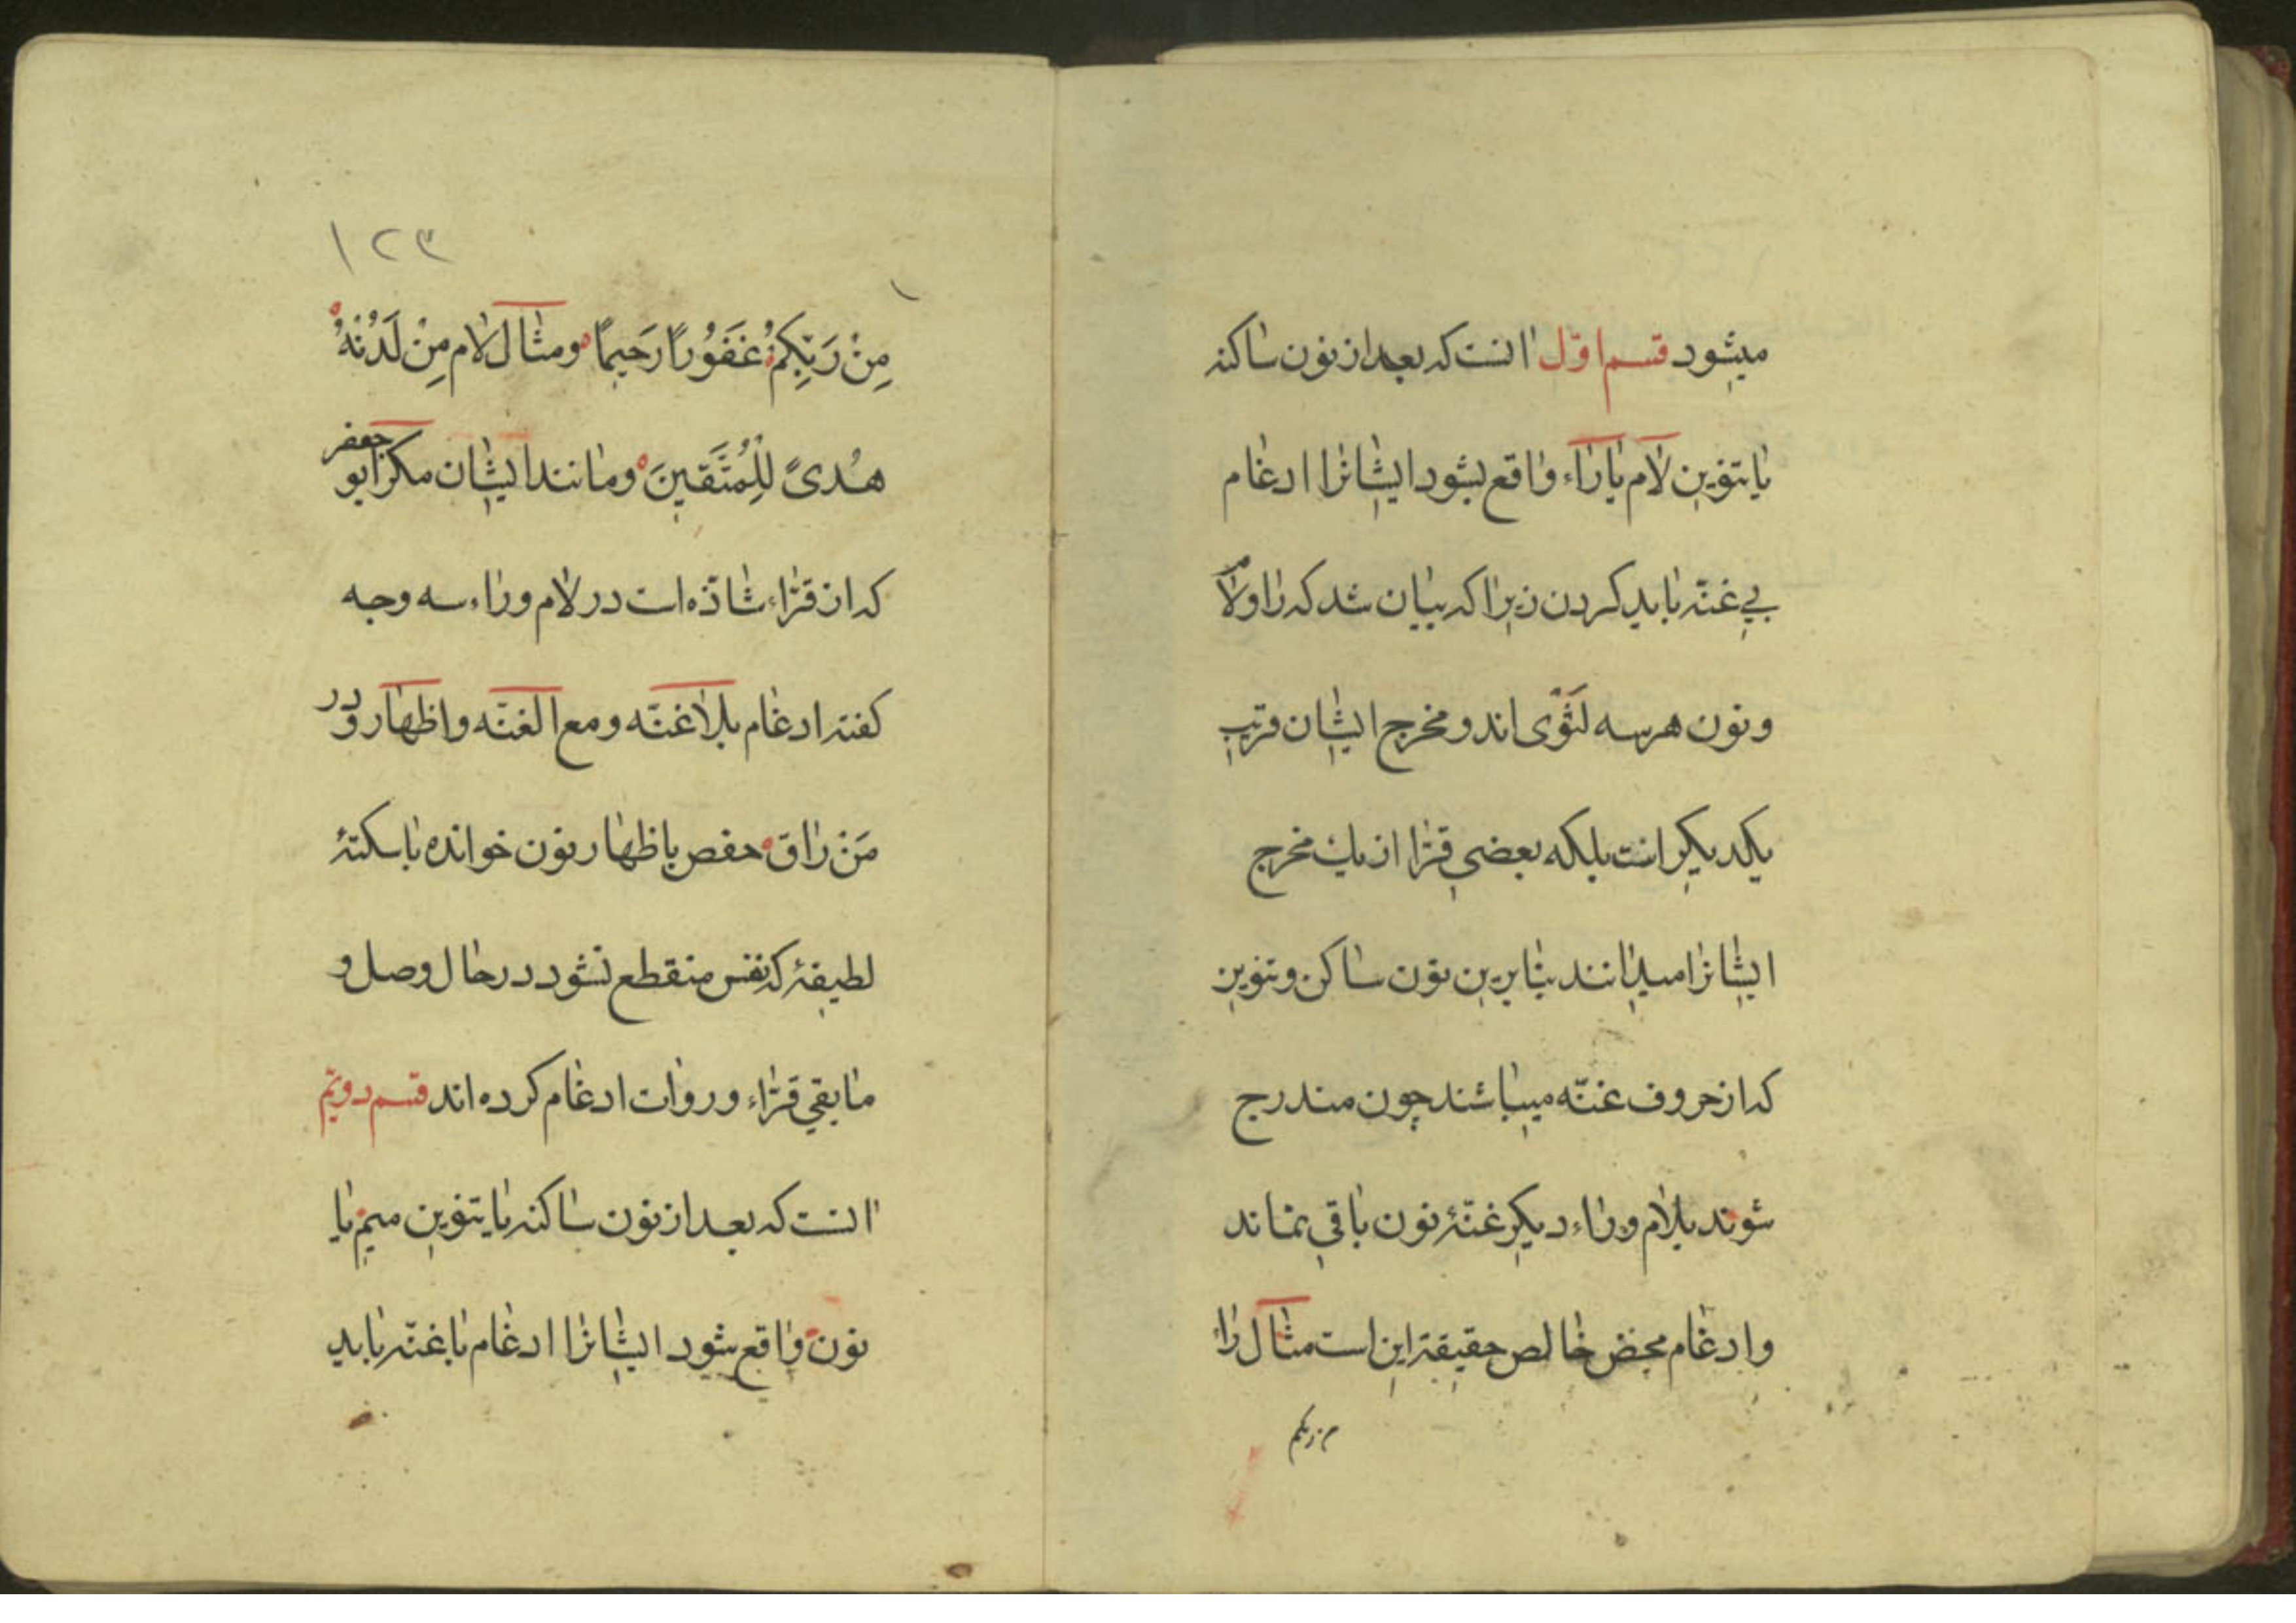 میشود قسم اوّل آنست که بعد از نون ساکنه
یا تنوین لام یا راء واقع بشود ایشانرا ادغام
بی غنّه باید کردن زیرا که بیان شد که را و لام
و نون هر سه لثوی اند و مخرج ایشان قریب
یکدیکر است بلکه بعضی قرّا از یک مخرج
ایشانرا میدانند بنابرین نون ساکن و تنوین
که از حروف غنّه میباشند چون مندرج
شوند بلام و راء دیکر غنّهٔ نون باقی نماند
و ادغام محض خالص حقیقة این است مثال راء
من ربکم
۱۲۳
مِنْ رَبِّكُمْ غَفُورًا رَحِيمًا و مثال لام مِنْ لَدُنْهُ
هُدىً لِلْمُتَّقِينَ و مانند ایشان مکر ابو جعفر
که از قرّاء شاذّه است در لام و راء سه وجه
کفته ادغام بلاغنّه و مع الغنّه و اظهار و در
مَنْ رَاق حفص باظهار نون خوانده با سکتهٔ
لطیفهٔ که نفس منقطع نشود در حال وصل و
مابقی قرّاء و روات ادغام کرده اند قسم دویّم
آنست که بعد از نون ساکنه یا تنوین میم یا
نون واقع شود ایشانرا ادغام با غنّه باید